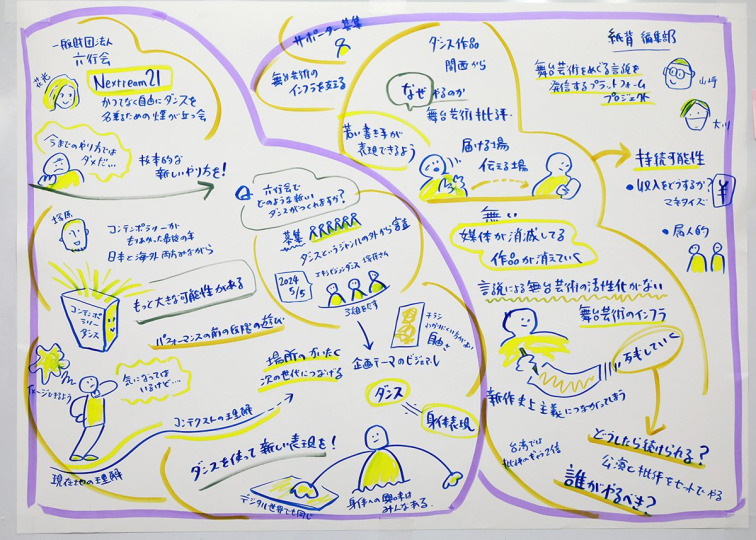 一般財団法人
六行会
Nextream21
かつてなく自由にダンスを
名乗るための煙が立つ会
花光
今までのやり方では
ダメだ…
抜本的な
新しいやり方を！
コンテンポラリーが
日本と海外 両方みながら
もっと大きな可能性がある
コンテンポ
ラリー
ダンス
パフォーマンスの前の段階の遊び
気になっては
いるけど…
コンテクストの理解
現在地の理解
場所のかいたく
次の世代につなげる
ダンスを使って新しい表現を！
デジタル世界でも同じ
身体への興味は
みんなある
Q
六行会で
どのような新しい
ダンスがつくれますか？
募集
ダンスというジャンルの外から審査
2024
5/5
3組をだす
チラシ
自由さ
企画テーマのビジュアル
ダンス
身体表現
サポーター募集
舞台芸術の
インフラを支える
ダンス作品
関西から
なぜやるのか
舞台芸術批評
若い書き手が
表現できるよう
届ける場
伝える場
無い
媒体が消滅してる
作品が消えていく
言説による舞台芸術の活性化がない
舞台芸術のインフラ
新作史上主義につながってしまう
台湾では
どうしたら続けられる？
公演と批評をセットでやる
誰がやるべき？
紙背 編集部
舞台芸術をめぐる言説を
発信するプラットフォーム
プロジェクト
山﨑
持続可能性
・収入をどうするか？
マネタイズ
¥
・属人的